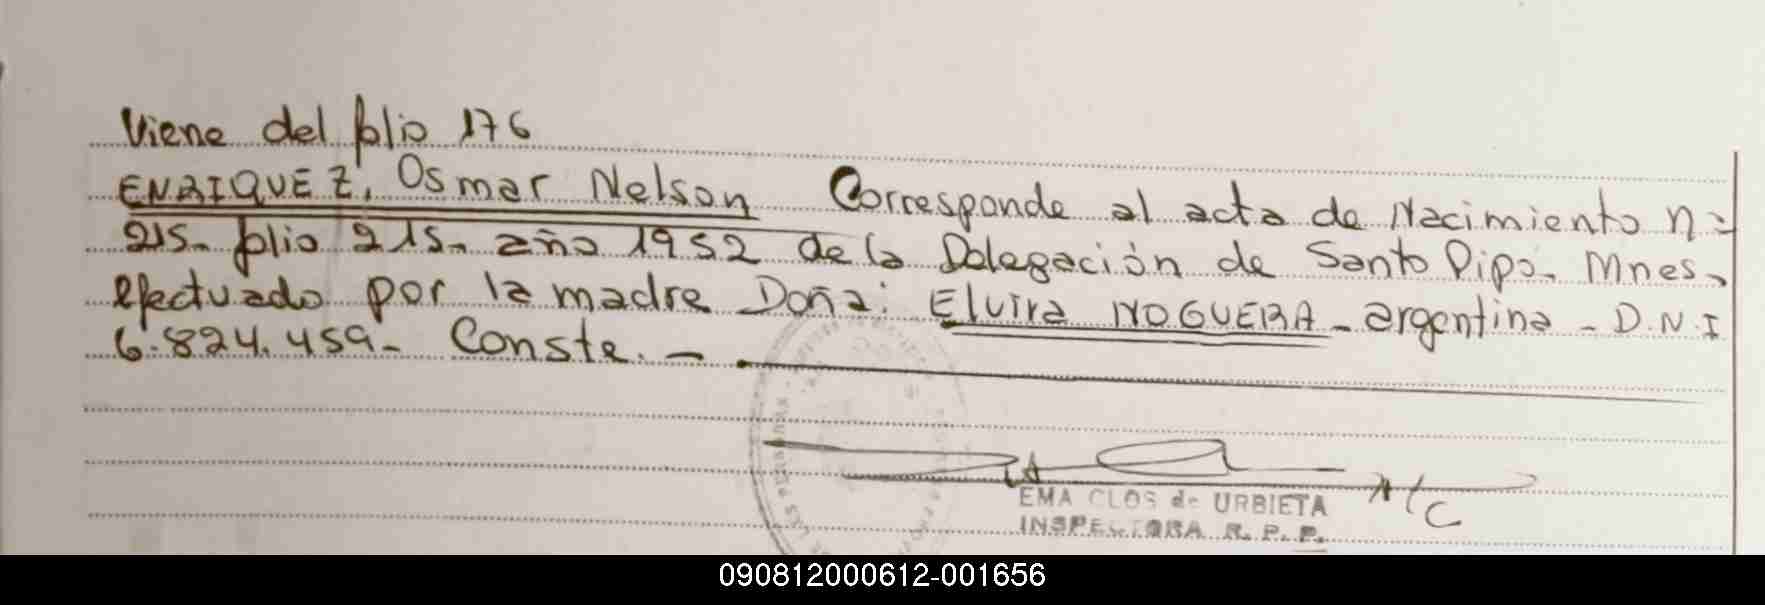 Viene del folio 176
ENRIQUEZ, Osmar Nelson Corresponde al acta de Nacimiento n=
215. folio 215. año 1952 de la Delegación de Santo Pipo. Mnes.
efectuado por la madre Doña: Elvira NOGUERA - argentina - D.N.I
6.824.459- Conste. -
EMA CLOS de URBIETA
INSPECTORA R. P. P.
A/C
090812000612-001656